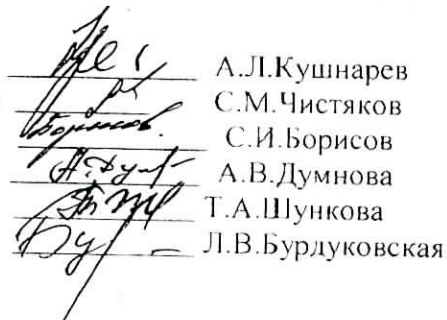 А.Л.Кушнарев
С.М.Чистяков
Борисов. С.И.Борисов
А.Дум А.В.Думнова
Т.А.Шункова
Бу Л.В.Бурдуковская